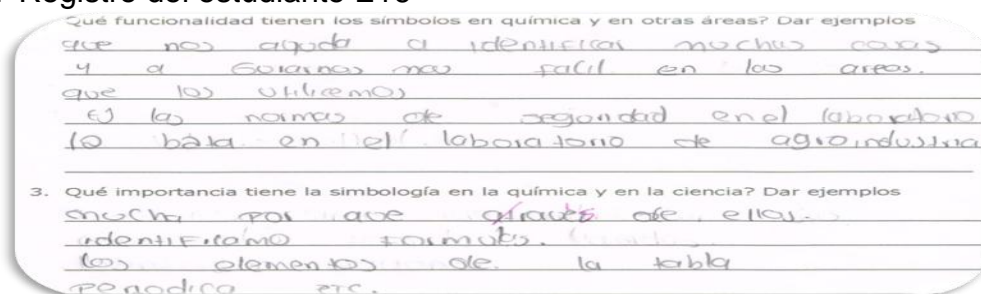 Registro del estudiante E10
Qué funcionalidad tienen los símbolos en química y en otras áreas? Dar ejemplos
que nos ayuda a identificar muchas cosas
y a Guiarnos mas facil en las areas.
que los utilicemos
EJ las normas de seguridad en el laboratorio
la bata en el laboratorio de agroindustria
3. Qué importancia tiene la simbología en la química y en la ciencia? Dar ejemplos
mucha por que atraves de ellos.
identificamo formulas.
los elementos de la tabla
periodica etc.